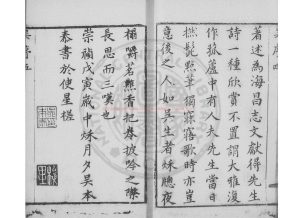 著述為海昌志文獻得先生
詩一種欣賞不置謂大雅復
作孤蘆中有人夫先生當日
撚髭點筆獨寤寐歌時亦豈
意後之人如吳生者穌牕夜
檠嚼茗然香把卷披吟之際
長思而三嘆也
崇禎戊寅歲中秌月夕吳本
泰書於使星槎